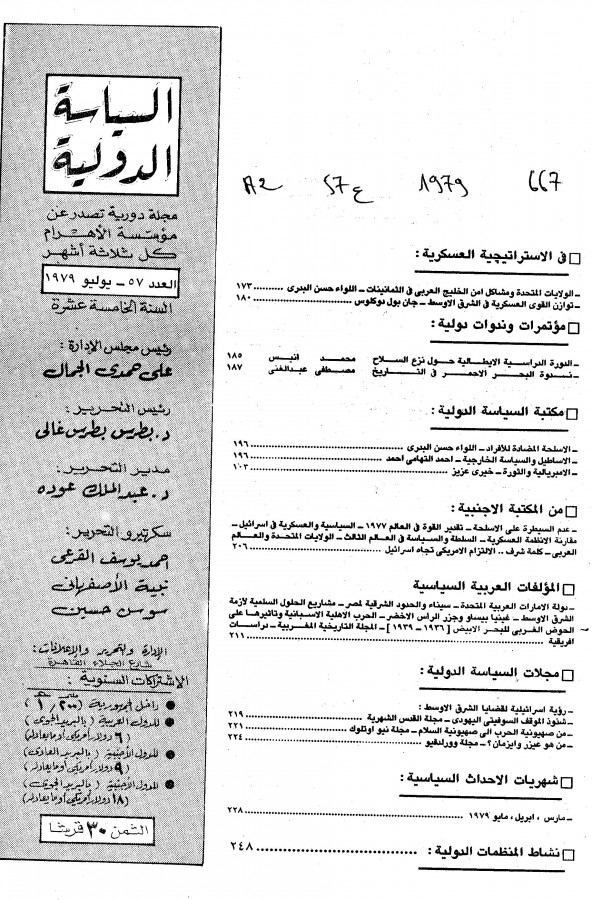 السياسة
الدولية
مجلة دورية تصدر عن
مؤسسة الأهرام
كل ثلاثة أشهر
العدد ٥٧ ـ يوليو ١٩٧٩
السنة الخامسة عشرة
رئيس مجلس الإدارة :
على حمدى الجمال
رئيس التحرير :
د. بطرس بطرس غالى
مدير التحرير :
د. عبد الملك عوده
سكرتيرو التحرير :
احمد يوسف القرعى
نبية الأصفهانى
سوسن حسين
الإدارة والتحرير والإعلانات :
شارع الجلاء القاهرة
الاشتراكات السنوية :
داخل الجمهورية
للدول العربية ( بالبريد الجوى )
( ٦ دولار أمريكى أو مايعادله )
للدول الأجنبية ( بالبريد العادى )
( ٩ دولار أمريكى أو مايعادله )
للدول الأجنبية ( بالبريد الجوى )
( ١٨ دولار أمريكى أو مايعادله )
الثمن ٣٠ قرشا
A2 57ع 1979 667
فى الاستراتيجية العسكرية :
ـ الولايات المتحدة ومشاكل امن الخليج العربى فى الثمانينات ـ اللواء حسن البدرى .......... ١٧٣
ـ توازن القوى العسكرية فى الشرق الاوسط ـ جان بول دوكلوس .......... ١٨٠
مؤتمرات وندوات دولية :
ـ الدورة الدراسية الايطالية حول نزع السلاح محمد انيس ١٨٥
ـ ندوة البحر الاحمر فى التاريخ مصطفى عبدالغنى ١٨٧
مكتبة السياسة الدولية :
ـ الاسلحة المضادة للأفراد ـ اللواء حسن البدرى .......... ١٩٦
ـ الاساطيل والسياسة الخارجية ـ احمد التهامى احمد .......... ١٩٦
ـ الامبريالية والثورة ـ خيرى عزيز .......... ١٠٣
من المكتبة الاجنبية :
ـ عدم السيطرة على الاسلحة ـ تقدير القوة فى العالم ١٩٧٧ ـ السياسية والعسكرية فى اسرائيل ـ
مقارنة الانظمة العسكرية ـ السلطة والسياسة فى العالم الثالث ـ الولايات المتحدة والعالم
العربى ـ كلمة شرف .. الالتزام الامريكى تجاه اسرائيل .......... ٢٠٦
المؤلفات العربية السياسية
ـ دولة الامارات العربية المتحدة ـ سيناء والحدود الشرقية لمصر ـ مشاريع الحلول السلمية لأزمة
الشرق الاوسط ـ غينيا بيساو وجزر الراس الاخضر ـ الحرب الاهلية الاسبانية وتاثيرها على
الحوض الغربى للبحر الابيض [ ١٩٣٦ ـ ١٩٣٩ ] ـ المجلة التاريخية المغربية ـ دراسات
افريقية .......... ٢١١
مجلات السياسة الدولية :
ـ رؤية اسرائيلية لقضايا الشرق الاوسط :
ـ شذوذ الموقف السوفيتى اليهودى ـ مجلة القدس الشهرية .......... ٢١٩
ـ من صهيونية الحرب الى صهيونية السلام ـ مجلة نيو اوتلوك .......... ٢٢١
ـ من هو عيزر وايزمان ؟ ـ مجلة وورلدفيو .......... ٢٢٤
شهريات الاحداث السياسية :
ـ مارس ، ابريل ، مايو ١٩٧٩ .......... ٢٢٨
نشاط المنظمات الدولية : .......... ٢٤٨